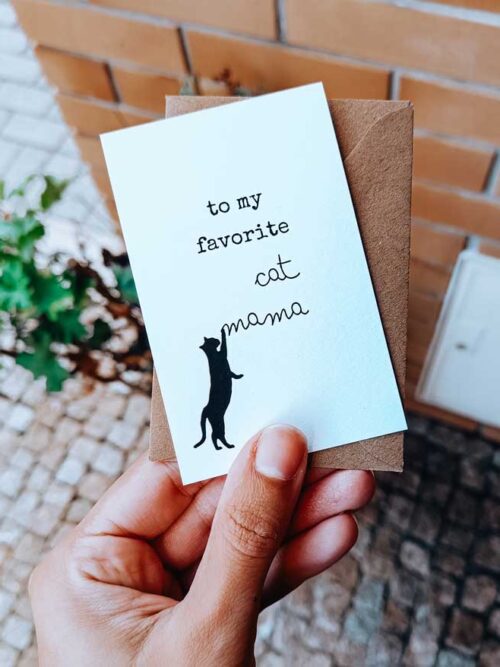 to my
favorite
cat
mama